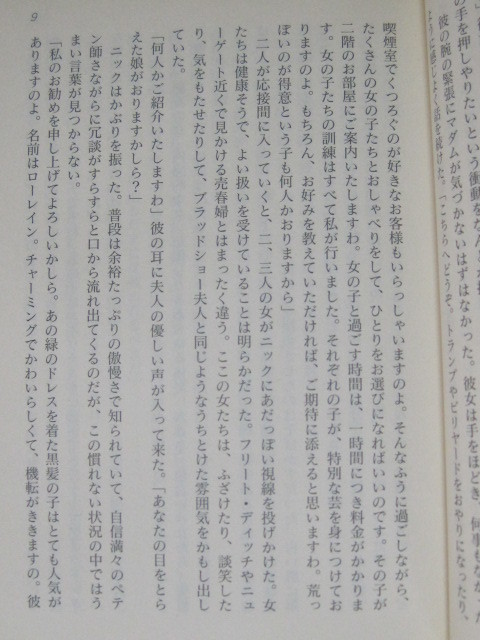 の手を押しやりたいという衝動をなんとか
彼の腕の緊張にマダムが気づかないはずはなかった。彼女は手をほどき、何事もなかった
話を続けた。「こちらへどうぞ。トランプやビリヤードをおやりになったり、
喫煙室でくつろぐのが好きなお客様もいらっしゃいますのよ。そんなふうに過ごしながら、
たくさんの女の子たちとおしゃべりをして、ひとりをお選びになればいいのです。その子が
二階のお部屋にご案内いたしますわ。女の子と過ごす時間は、一時間につき料金がかかりま
す。女の子たちの訓練はすべて私が行いました。それぞれの子が、特別な芸を身につけてお
りますのよ。もちろん、お好みを教えていただければ、ご期待に添えると思いますわ。荒っ
ぽいのが得意という子も何人かおりますから」
二人が応接間に入っていくと、二、三人の女がニックにあだっぽい視線を投げかけた。女
たちは健康そうで、よい扱いを受けていることは明らかだった。フリート・ディッチやニュ
ーゲート近くで見かける売春婦とはまったく違う。ここの女たちは、ふざけたり、談笑した
り、気をもたせたりして、ブラッドショー夫人と同じようなうちとけた雰囲気をかもし出し
ていた。
「何人かご紹介いたしますわ」彼の耳に夫人の優しい声が入って来た。「あなたの目をとら
えた娘がおりますかしら?」
ニックはかぶりを振った。普段は余裕たっぷりの傲慢さで知られていて、自信満々のペテ
ン師さながらに冗談がすらすらと口から流れ出てくるのだが、この慣れない状況の中ではう
まい言葉が見つからない。
「私のお勧めを申し上げてよろしいかしら。あの緑のドレスを着た黒髪の子はとても人気が
ありますのよ。名前はローレイン。チャーミングでかわいらしくて、機転がききますの。彼
9